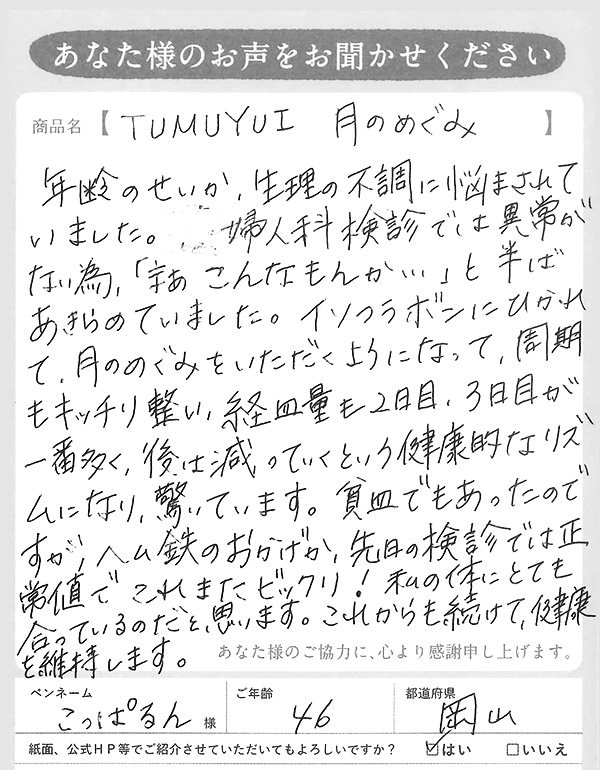 あなた様のお声をお聞かせください
商品名【 TUMUYUI 月のめぐみ 】
年齢のせいか、生理の不調に悩まされて
いました。 婦人科検診では異常が
ない為、「まあ こんなもんか…」と 半ば
あきらめていました。イソフラボンにひかれ
て、月のめぐみをいただくようになって、周期
もキッチリ整い、経血量も2日目、3日目が
一番多く、後は減っていくという健康的なリズ
ムになり、驚いています。貧血でもあったので
すが、ヘム鉄のおかげか、先日の検診では正
常値で これまたビックリ!私の体にとても
合っているのだと、思います。これからも続けて、健康
を維持します。
あなた様のご協力に、心より感謝申し上げます。
ペンネーム ご年齢 都道府県
こっぱるん 様 46 岡山
紙面、公式HP等でご紹介させていただいてもよろしいですか? ☑はい □いいえ